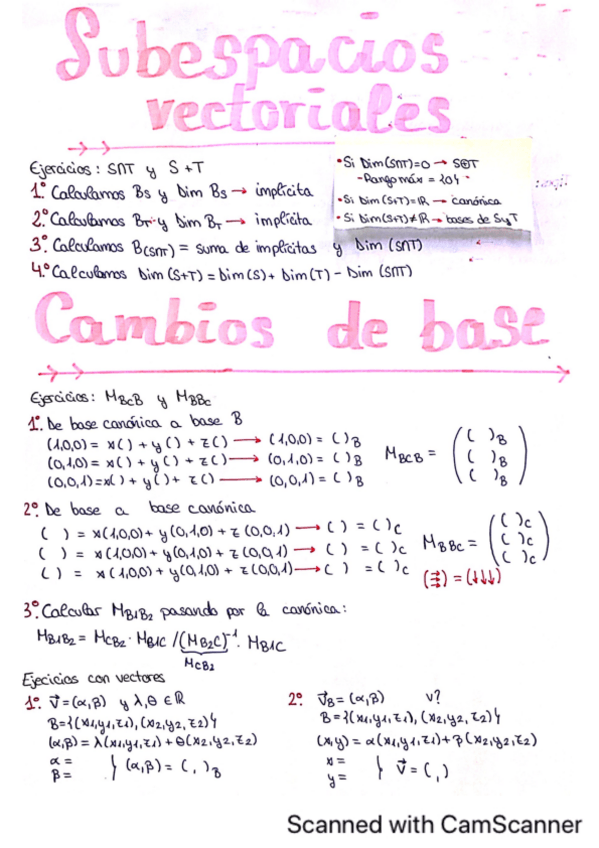 Subespacios
vectoriales
Ejercicios: S∩T y S+T
1º. Calculamos Bs y Dim Bs → implícita
2º. Calculamos BT y Dim BT → implícita
3º. Calculamos B(S∩T) = suma de implícitas y Dim (S∩T)
4º. Calculamos Dim (S+T) = Dim(S) + Dim(T) - Dim (S∩T)
• Si Dim(S∩T)=0 → S⊕T
- Rango máx = {0}
• Si Dim(S+T)=ℝ → canónica
• Si Dim(S+T)≠ℝ → bases de S y T
Cambios de base
Ejercicios: MBcB y MBBc
1º. De base canónica a base B
(1,0,0) = x( ) + y( ) + z( ) → (1,0,0) = ( )B
(0,1,0) = x( ) + y( ) + z( ) → (0,1,0) = ( )B
(0,0,1) = x( ) + y( ) + z( ) → (0,0,1) = ( )B
MBCB = (( )B ( )B ( )B)
2º. De base a base canónica
( ) = x(1,0,0) + y(0,1,0) + z(0,0,1) → ( ) = ( )c
( ) = x(1,0,0) + y(0,1,0) + z(0,0,1) → ( ) = ( )c
( ) = x(1,0,0) + y(0,1,0) + z(0,0,1) → ( ) = ( )c
MBBc = (( )c ( )c ( )c)
(⇶) = (↓↓↓)
3º. Calcular MB1B2 pasando por la canónica:
MB1B2 = MCB2 · MB1C / (MB2C)⁻¹ · MB1C
MCB2
Ejecicios con vectores
1º. v⃗ = (α,β) y λ,θ ∈ ℝ
B={(x1,y1,z1), (x2,y2,z2)}
(α,β) = λ(x1,y1,z1) + θ(x2,y2,z2)
α =
β =
} (α,β) = ( , )B
2º. v⃗B = (α,β) v?
B={(x1,y1,z1), (x2,y2,z2)}
(x,y) = α(x1,y1,z1) + β(x2,y2,z2)
x =
y =
} v⃗ = ( , )
Scanned with CamScanner